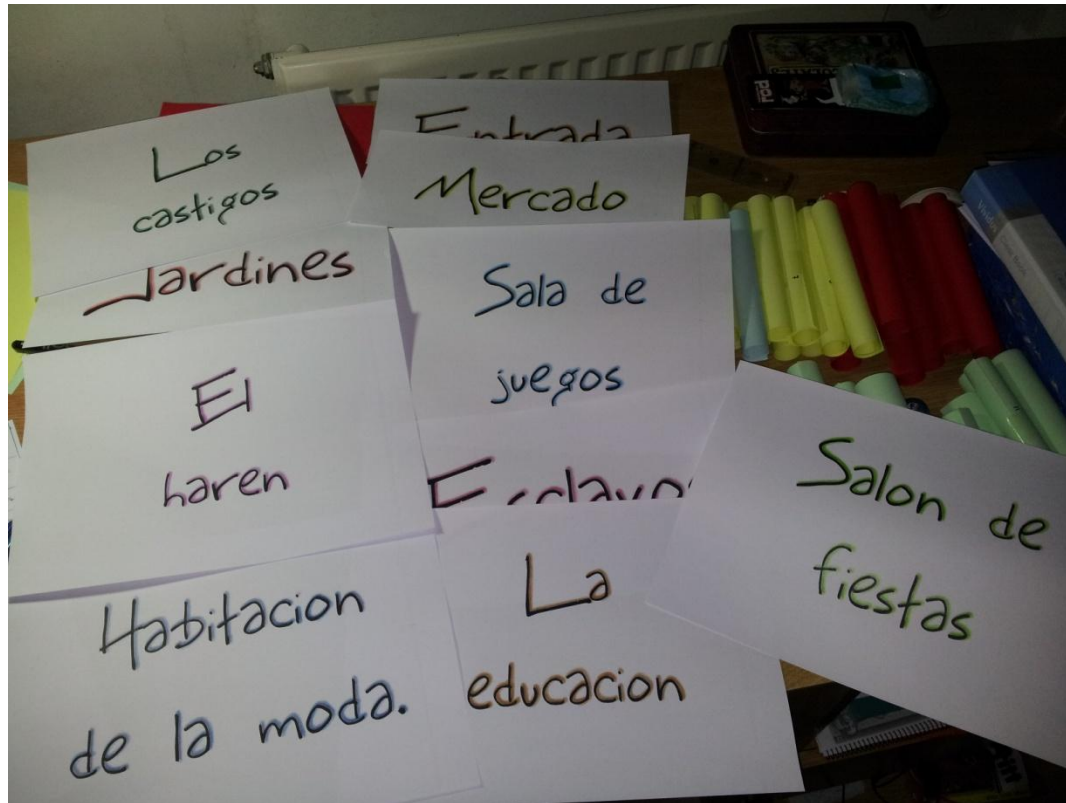 Los
castigos
Entrada
Mercado
Jardines
Sala de
juegos
El
haren
Salon de
fiestas
Habitacion
de la moda.
La
educacion